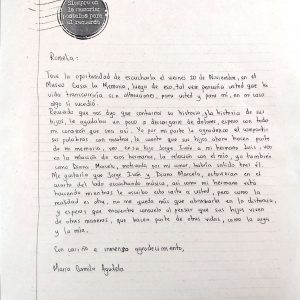 Siempre en
la memoria:
postales para
el recuerdo
Romelia:
Tuve la oportunidad de escucharla el viernes 20 de Noviembre, en el
Museo Casa la Memoria, luego de eso, tal vez pensaría usted que la
vida transcurriría sin alteraciones, pero usted y para mí, en mi caso
algo si sucedió.
Recuerdo que nos dijo que contarnos su historia y la historia de sus
hijos, le ayudaba un poco a descansar de dolores, espero con todo
mi corazón que sea así. Yo por mi parte le agradezco el compartir
sus palabras con nosotros, le cuento que sus hijos ahora hacen parte
de mi memoria, veo en su hijo Jorge Iván a mi hermano Luis, veo
en la relación de esos hermanos, la relación con el mío, yo también
como Diana Marcela, motivada por mi amor, habría salido tras él.
Me gustaría que Jorge Iván y Diana Marcela, estuvieran en el
cuarto del lado escuchando música, así como mi hermano está
haciendo mientras le escribo esta carta a usted, pero como la
realidad es otra, no me queda más que abrazarla en la distancia,
y esperar que encuentre consuelo al pensar que sus hijos viven
de otras maneras, que hacen parte de otras vidas, como la suya
y la mía.
Con cariño e inmenso agradecimiento,
María Camila Agudelo